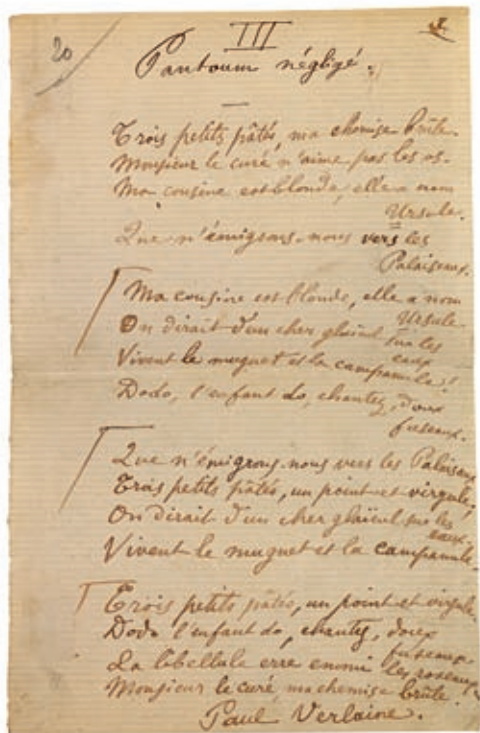 20
III
Pantoum négligé.
Trois petits pâtés, ma chemise brûle.
Monsieur le curé n'aime pas les os.
Ma cousine est blonde, elle a nom
Ursule.
Que n'émigrons-nous vers les
Palaiseaux.
Ma cousine est blonde, elle a nom
Ursule.
On dirait d'un cher glaïeul sur les
eaux
Vivent le muguet et la campanule!
Dodo, l'enfant do, chantez, doux
fuseaux.
Que n'émigrons-nous vers les Palaiseaux
Trois petits pâtés, un point et virgule;
On dirait d'un cher glaïeul sur les
eaux.
Vivent le muguet et la campanule.
Trois petits pâtés, un point et virgule
Dodo l'enfant do, chantez, doux
fuseaux,
La libellule erre emmi les roseaux.
Monsieur le curé, ma chemise brûle.
Paul Verlaine.